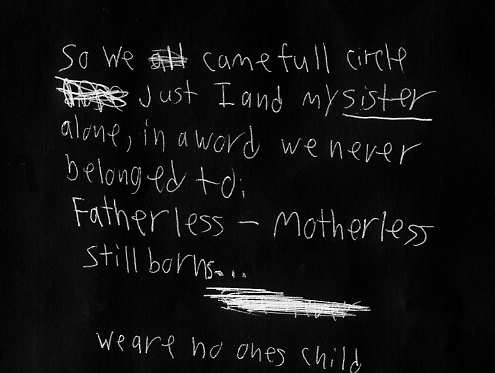 So we all came full circle
Just I and my sister
alone, in a word we never
belonged to;
Fatherless – Motherless
still borns...
we are no ones child